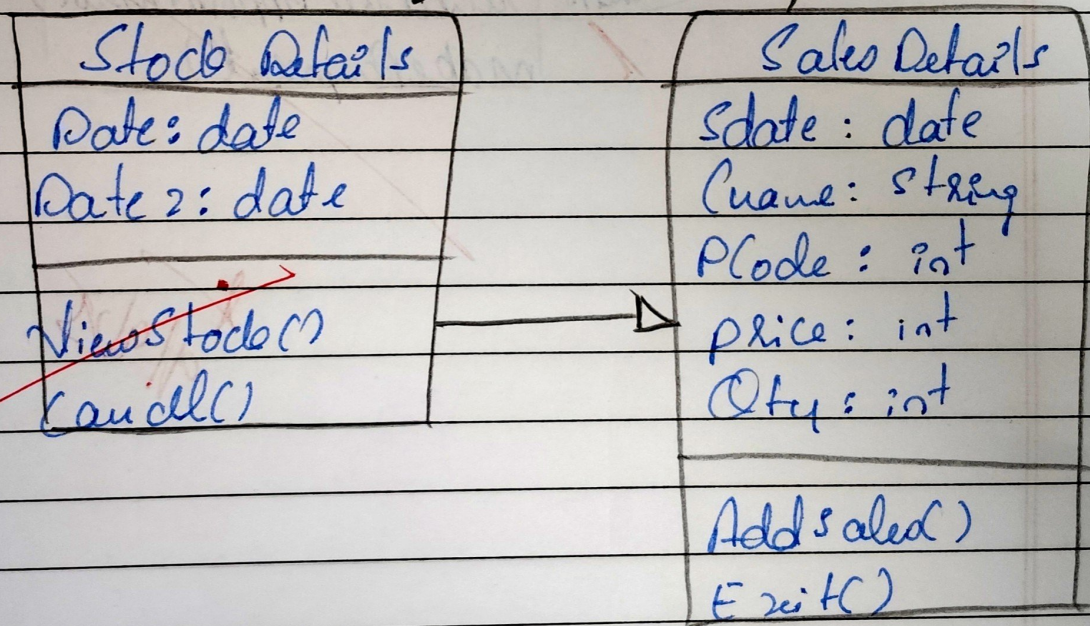 Stock Details
Date: date
Date 2: date
ViewStock()
Cancel()
Sales Details
Sdate: date
Cname: string
PCode: int
price: int
Qty: int
Addsales()
Exit()